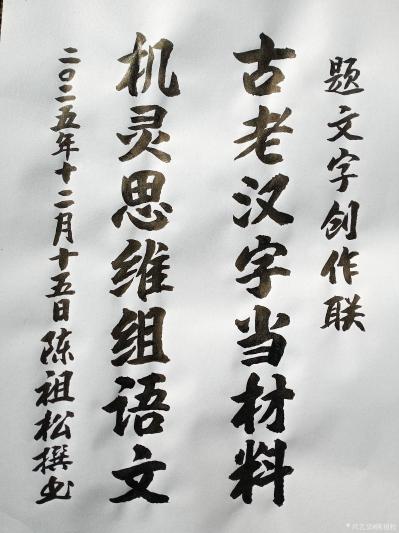 题文字创作联
古老汉字当材料
机灵思维组语文
二〇二五年十二月十五日陈祖松撰书